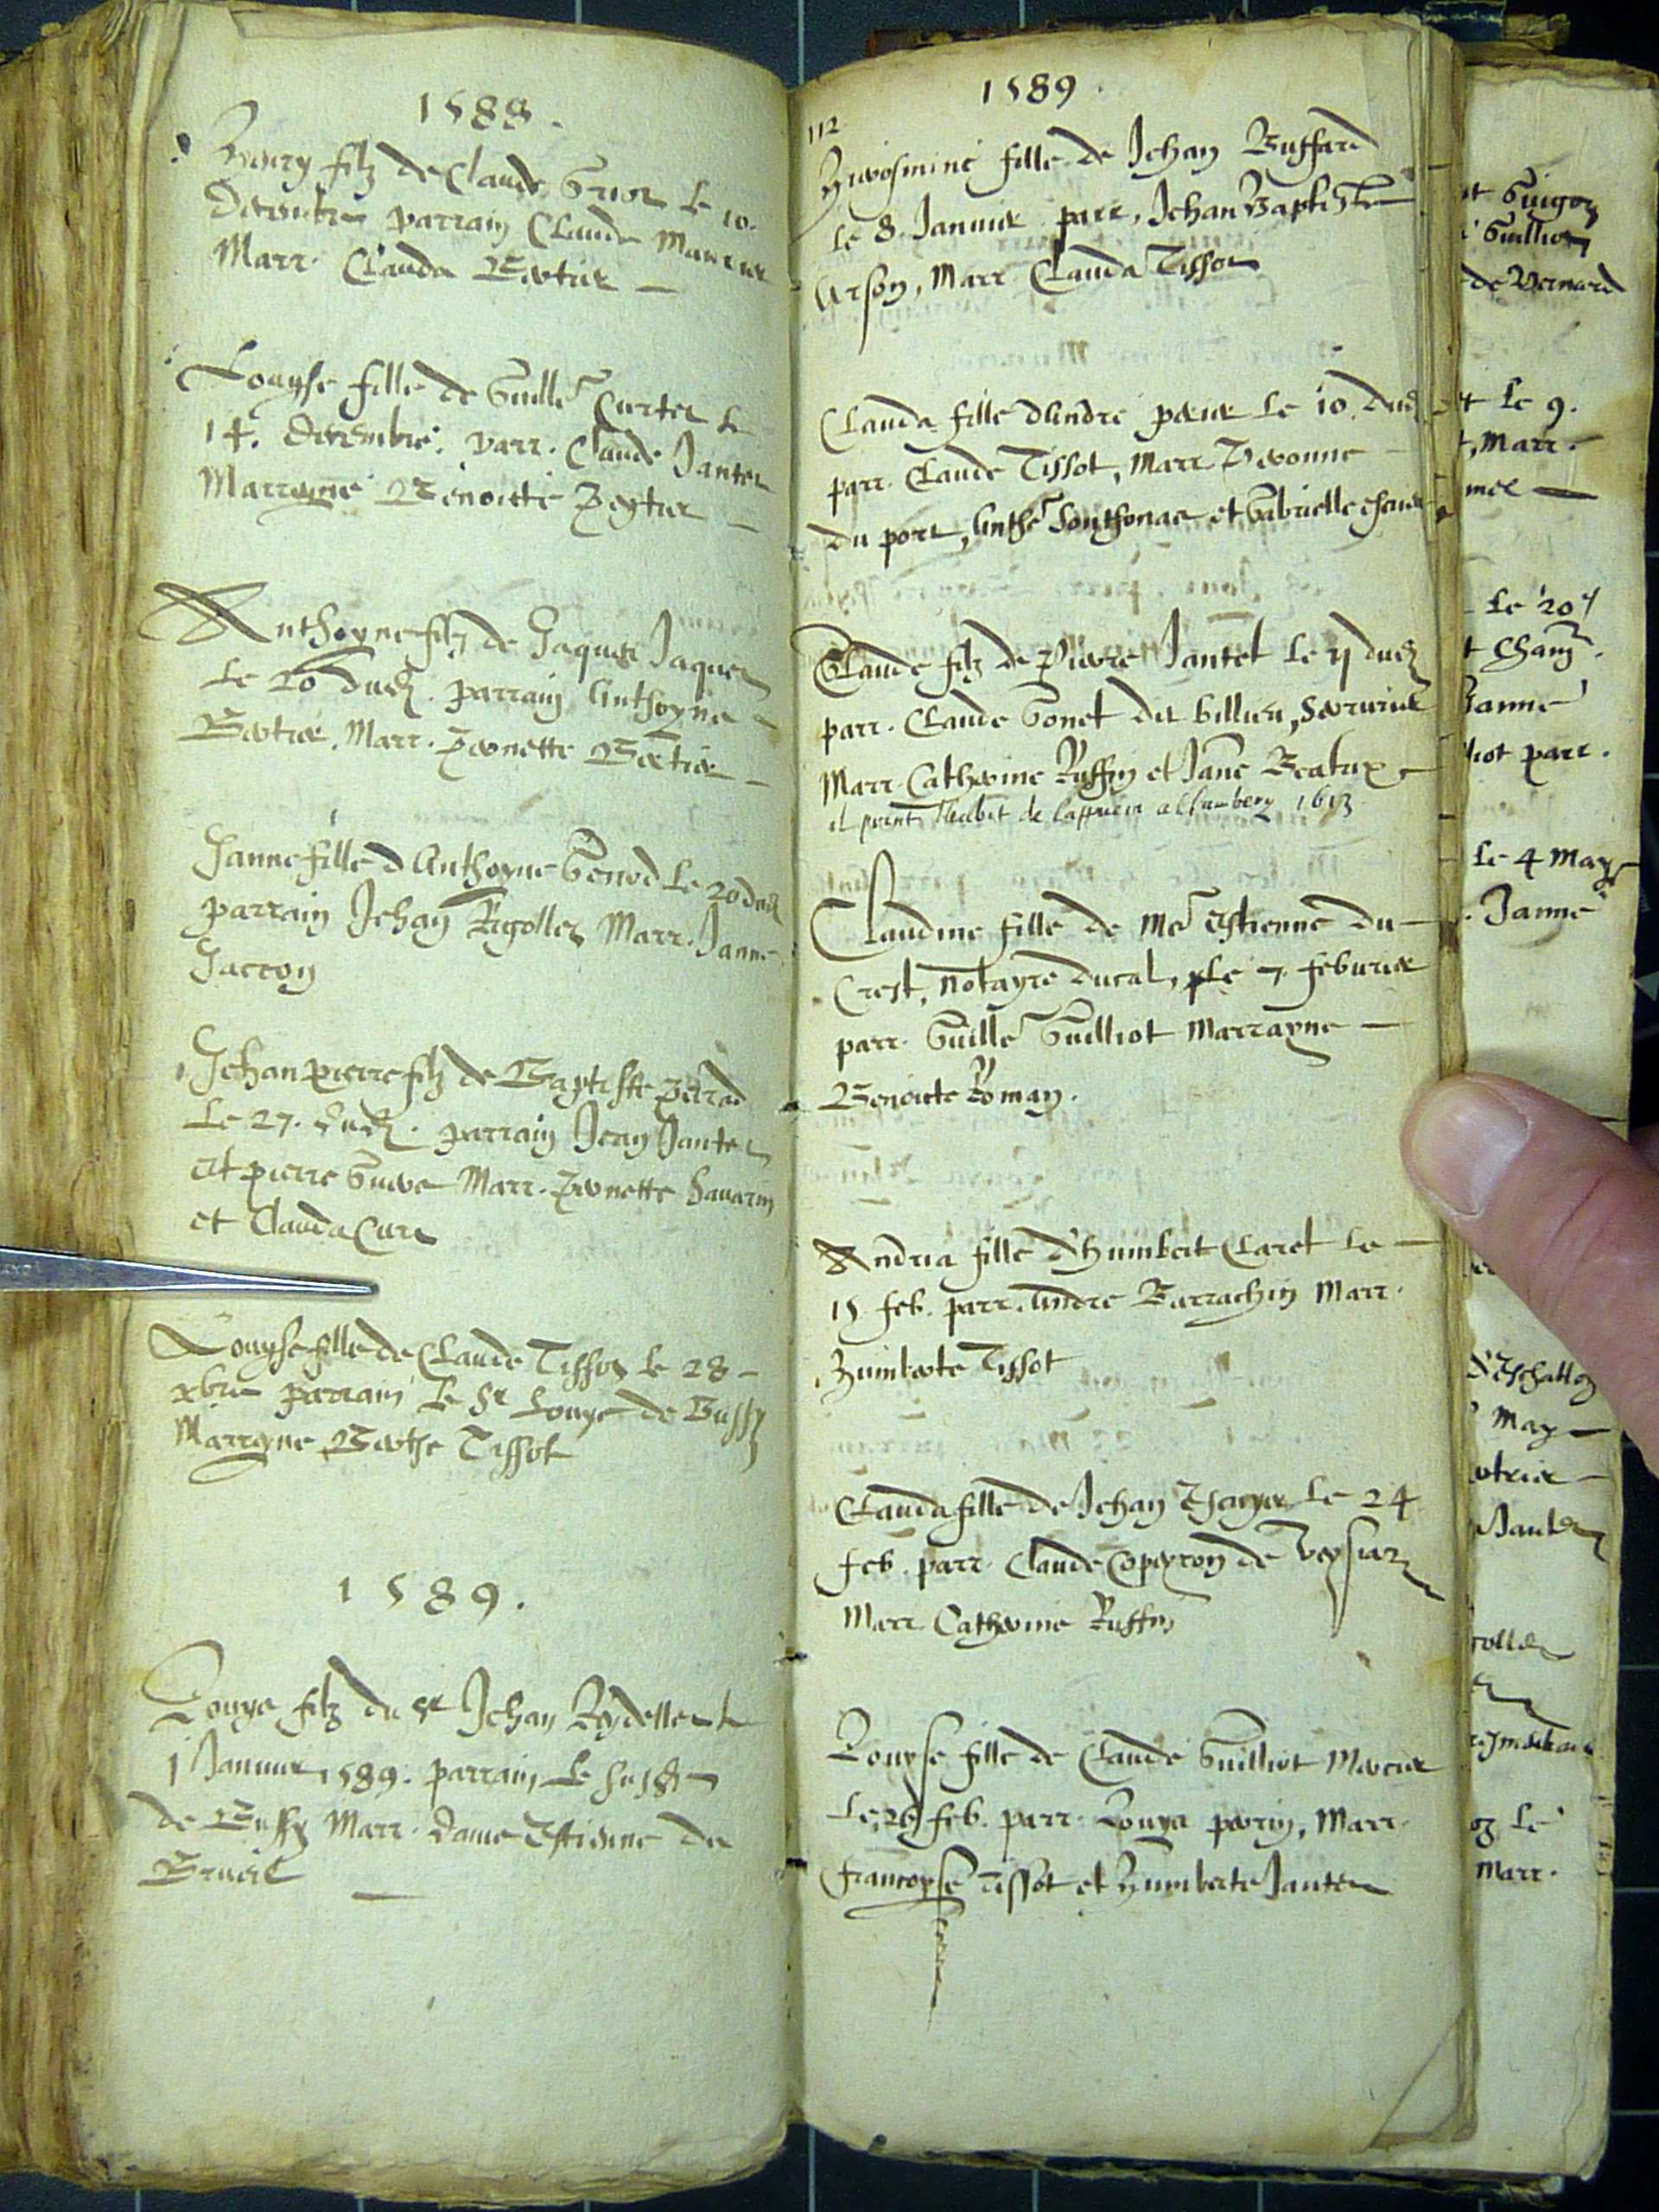 1588.
Henry filz de Claude Griot le 10.
Decembre parrain Claude Mareciet
Marr. Clauda Bertier
Louyse fille de Guille Curtet le
14. Decembre. parr. Claude Jantet
Marrayne Benoicte
Anthoyne filz de Jaques Jaquet
Le 20 dud. parrain Anthoyne
Bertier, Marr. Pernette Bertier
Janne fille d'Anthoyne Genod Le 20 dud
parrain Jehan Rigollet Marr. Janne
Jaccon
Jehan pierre filz de Baptiste Perrad
Le 27. dud. parrain Jean Jantet
Et pierre Marr. Pernette Savarin
et Clauda Curt
Louyse fille de Claude Tissot le 28
xbre parrain Le Sr Louys de Bussy
Marrayne Berthe Tissot
1589.
Louys filz du Sr Jehan Reydellet le
1 Janvier 1589. parrain Le
de Bussy Marr. Dame Estienne du
Brueil
1589.
112
Hierosmine fille de Jehan Buffard
le 8. Janvier parr, Jehan Baptiste
Arson, Marr Clauda Tissot
Clauda fille d'Andre perier le 10. dud
parr. Claude Tissot, Marr Pivonne
du port, Anthe Sonthonar et Gabrielle
Claude filz de Pierre Jantet le 11 dud
parr. Claude Gonet dit Billieu, Serrurier
Marr. Catherine Ruffin et Jane Beatrix
il print l'habit de Capucin a Chambery 1613
Claudine fille de Me Estienne du
Crest, notayre ducal, le 7. febvrier
parr. Guille Guilliot Marrayne
Benoicte Roman.
Andria fille d'humbert Claret le
15 feb. parr. Andre Barrachin Marr.
Humberte Tissot
Clauda fille de Jehan le 24
feb. parr. Claude Coperon de Veysiaz
Marr Catherine Ruffin
Louyse fille de Claude Guilliot Mercier
Le 26 feb. parr. Louys perrin, Marr.
francoyse Tissot et Humberte Jantet
Guigon
Guilliot
de Bernard
et le 9.
, Marr.
Le 20
t Cham
Janne
liot parr.
Le 4 May
. Janne
d'Eschallon
May
Jantet
le
Marr.